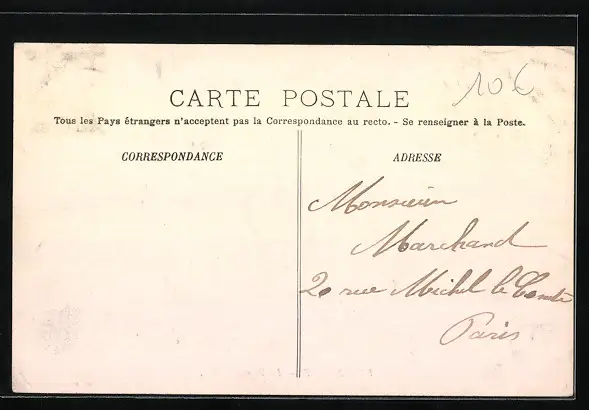 CARTE POSTALE
10€
Tous les Pays étrangers n'acceptent pas la Correspondance au recto. - Se renseigner à la Poste.
CORRESPONDANCE
ADRESSE
Monsieur
Marchand
20 rue Michel le Comte
Paris